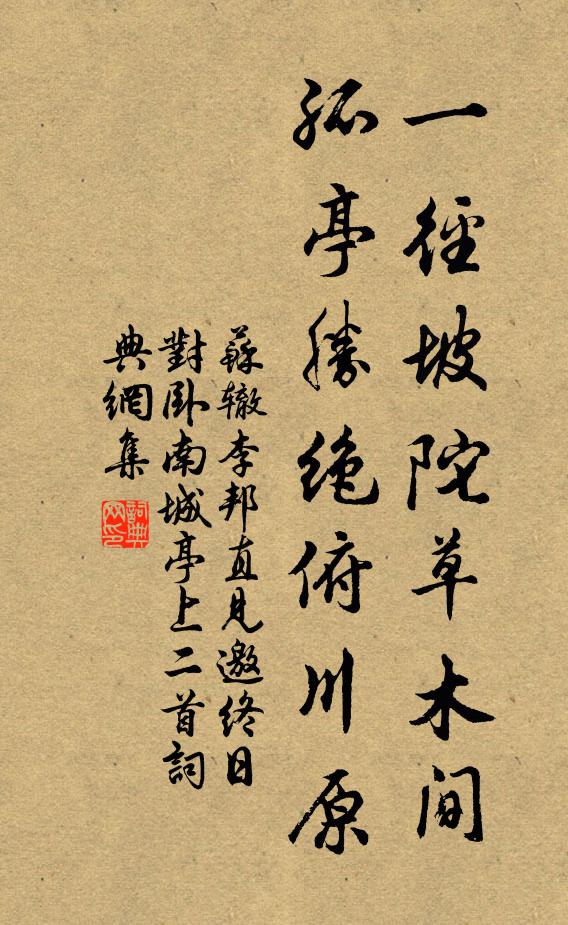 一徑坡陀草木間
孤亭勝絶俯川原
蘇辙李邦直見邀終日
對卧南城亭上二首詞
典網集
詞典
网印